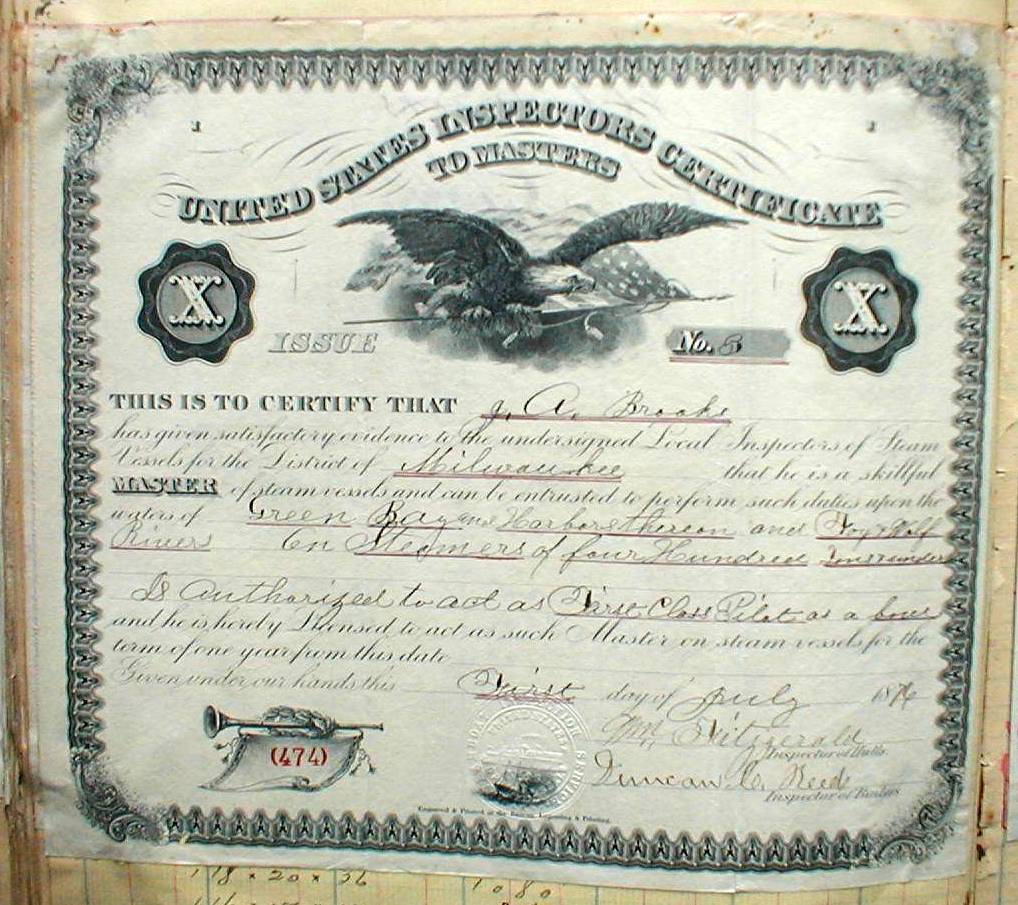 1 1
UNITED STATES INSPECTORS CERTIFICATE
TO MASTERS
X X
ISSUE No. 5
THIS IS TO CERTIFY THAT J. A. Brooks
has given satisfactory evidence to the undersigned Local Inspectors of Steam
Vessels for the District of Milwaukee that he is a skillful
MASTER of steam vessels and can be entrusted to perform such duties upon the
waters of Green Bay and Harbors thereon and Fox & Wolf
Rivers On Steamers of four Hundred Tons & under
Is Authorized to act as First Class Pilot as above
and he is hereby Licensed to act as such Master on steam vessels for the
term of one year from this date
Given under our hands this First day of July 1876
Wm Fitzgerald
Inspector of Hulls.
(474)
Duncan C. Reed
Inspector of Boilers
Engraved & Printed at the Bureau, Engraving & Printing.
118 x 20 x 36 1080